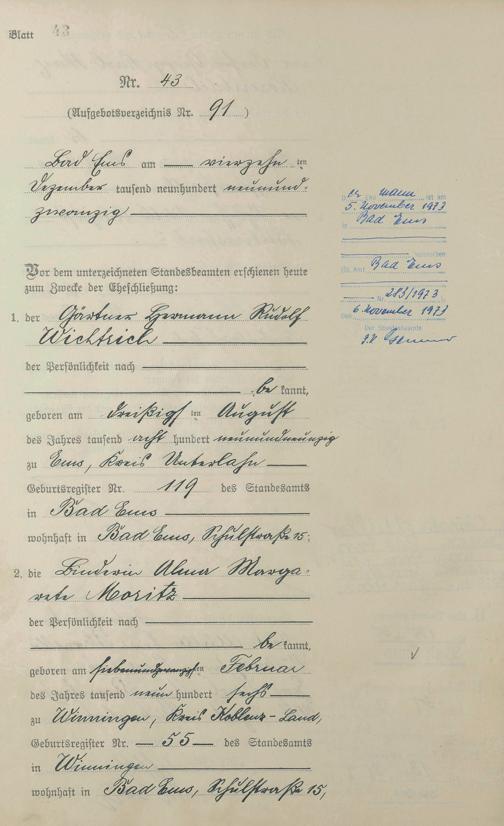 Blatt 43
Nr. 43
(Aufgebotsverzeichnis Nr. 91)
Bad Ems am — vierzehn ten
Dezember tausend neunhundert neunund-
zwanzig
Vor dem unterzeichneten Standesbeamten erschienen heute
zum Zwecke der Eheschließung:
1. der Gärtner Hermann Rudolf
Wichtrich
der Persönlichkeit nach
be kannt,
geboren am dreißigs ten August
des Jahres tausend acht hundert neunundneunzig
zu Ems, Kreis Unterlahn
Geburtsregister Nr. 119 des Standesamts
in Bad Ems
wohnhaft in Bad Ems, Schulstraße 15;
2. die Binderin Alma Marga-
rete Moritz
der Persönlichkeit nach
be kannt,
geboren am siebenundzwanzigsten Februar
des Jahres tausend neun hundert sechs
zu Winningen, Kreis Koblenz-Land,
Geburtsregister Nr. — 55 — des Standesamts
in Winningen
wohnhaft in Bad Ems, Schulstraße 15,
mann ist am
5. November 1973
in Bad Ems
verstorben
Bad Ems
Nr. 283/1973
6. November 1973
Der Standesbeamte